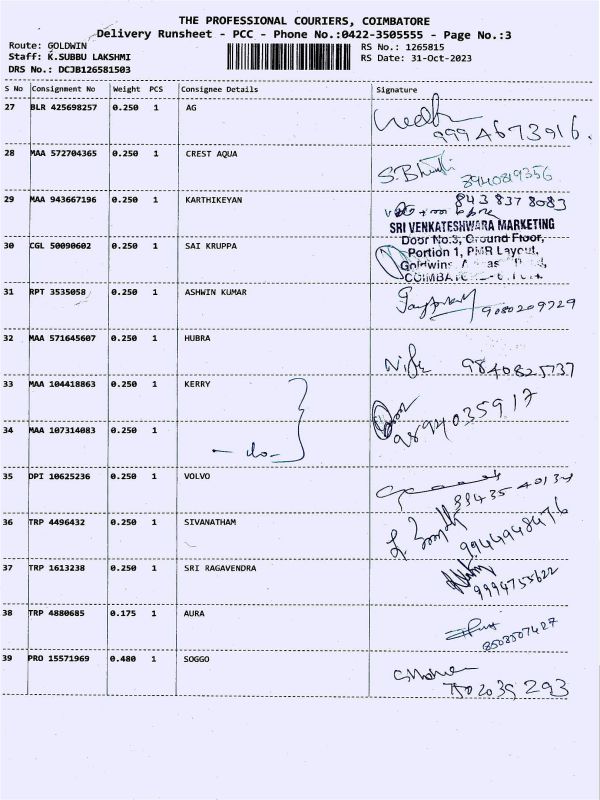 THE PROFESSIONAL COURIERS, COIMBATORE
Delivery Runsheet - PCC - Phone No.:0422-3505555 - Page No.:3
Route: GOLDWIN RS No.: 1265815
Staff: K.SUBBU LAKSHMI RS Date: 31-Oct-2023
DRS No.: DCJB126581503
S No Consignment No Weight PCS Consignee Details Signature
27 BLR 425698257 0.250 1 AG
9994673916.
28 MAA 572704365 0.250 1 CREST AQUA
8940819356
29 MAA 943667196 0.250 1 KARTHIKEYAN 843 837 8083
SRI VENKATESHWARA MARKETING
Door No:3, Ground Floor,
30 CGL 50090602 0.250 1 SAI KRUPPA Portion 1, PMR Layout,
Goldwins
COIMBATORE
31 RPT 3535058 0.250 1 ASHWIN KUMAR
9080209729
32 MAA 571645607 0.250 1 HUBRA
9840825737
33 MAA 104418863 0.250 1 KERRY
9894035917
34 MAA 107314083 0.250 1
- do -
35 OPI 10625236 0.250 1 VOLVO
89435 40134
36 TRP 4496432 0.250 1 SIVANATHAM
9944948476
37 TRP 1613238 0.250 1 SRI RAGAVENDRA
9994755622
38 TRP 4880685 0.175 1 AURA
8508507427
39 PRO 15571969 0.480 1 SOGGO
7502039293